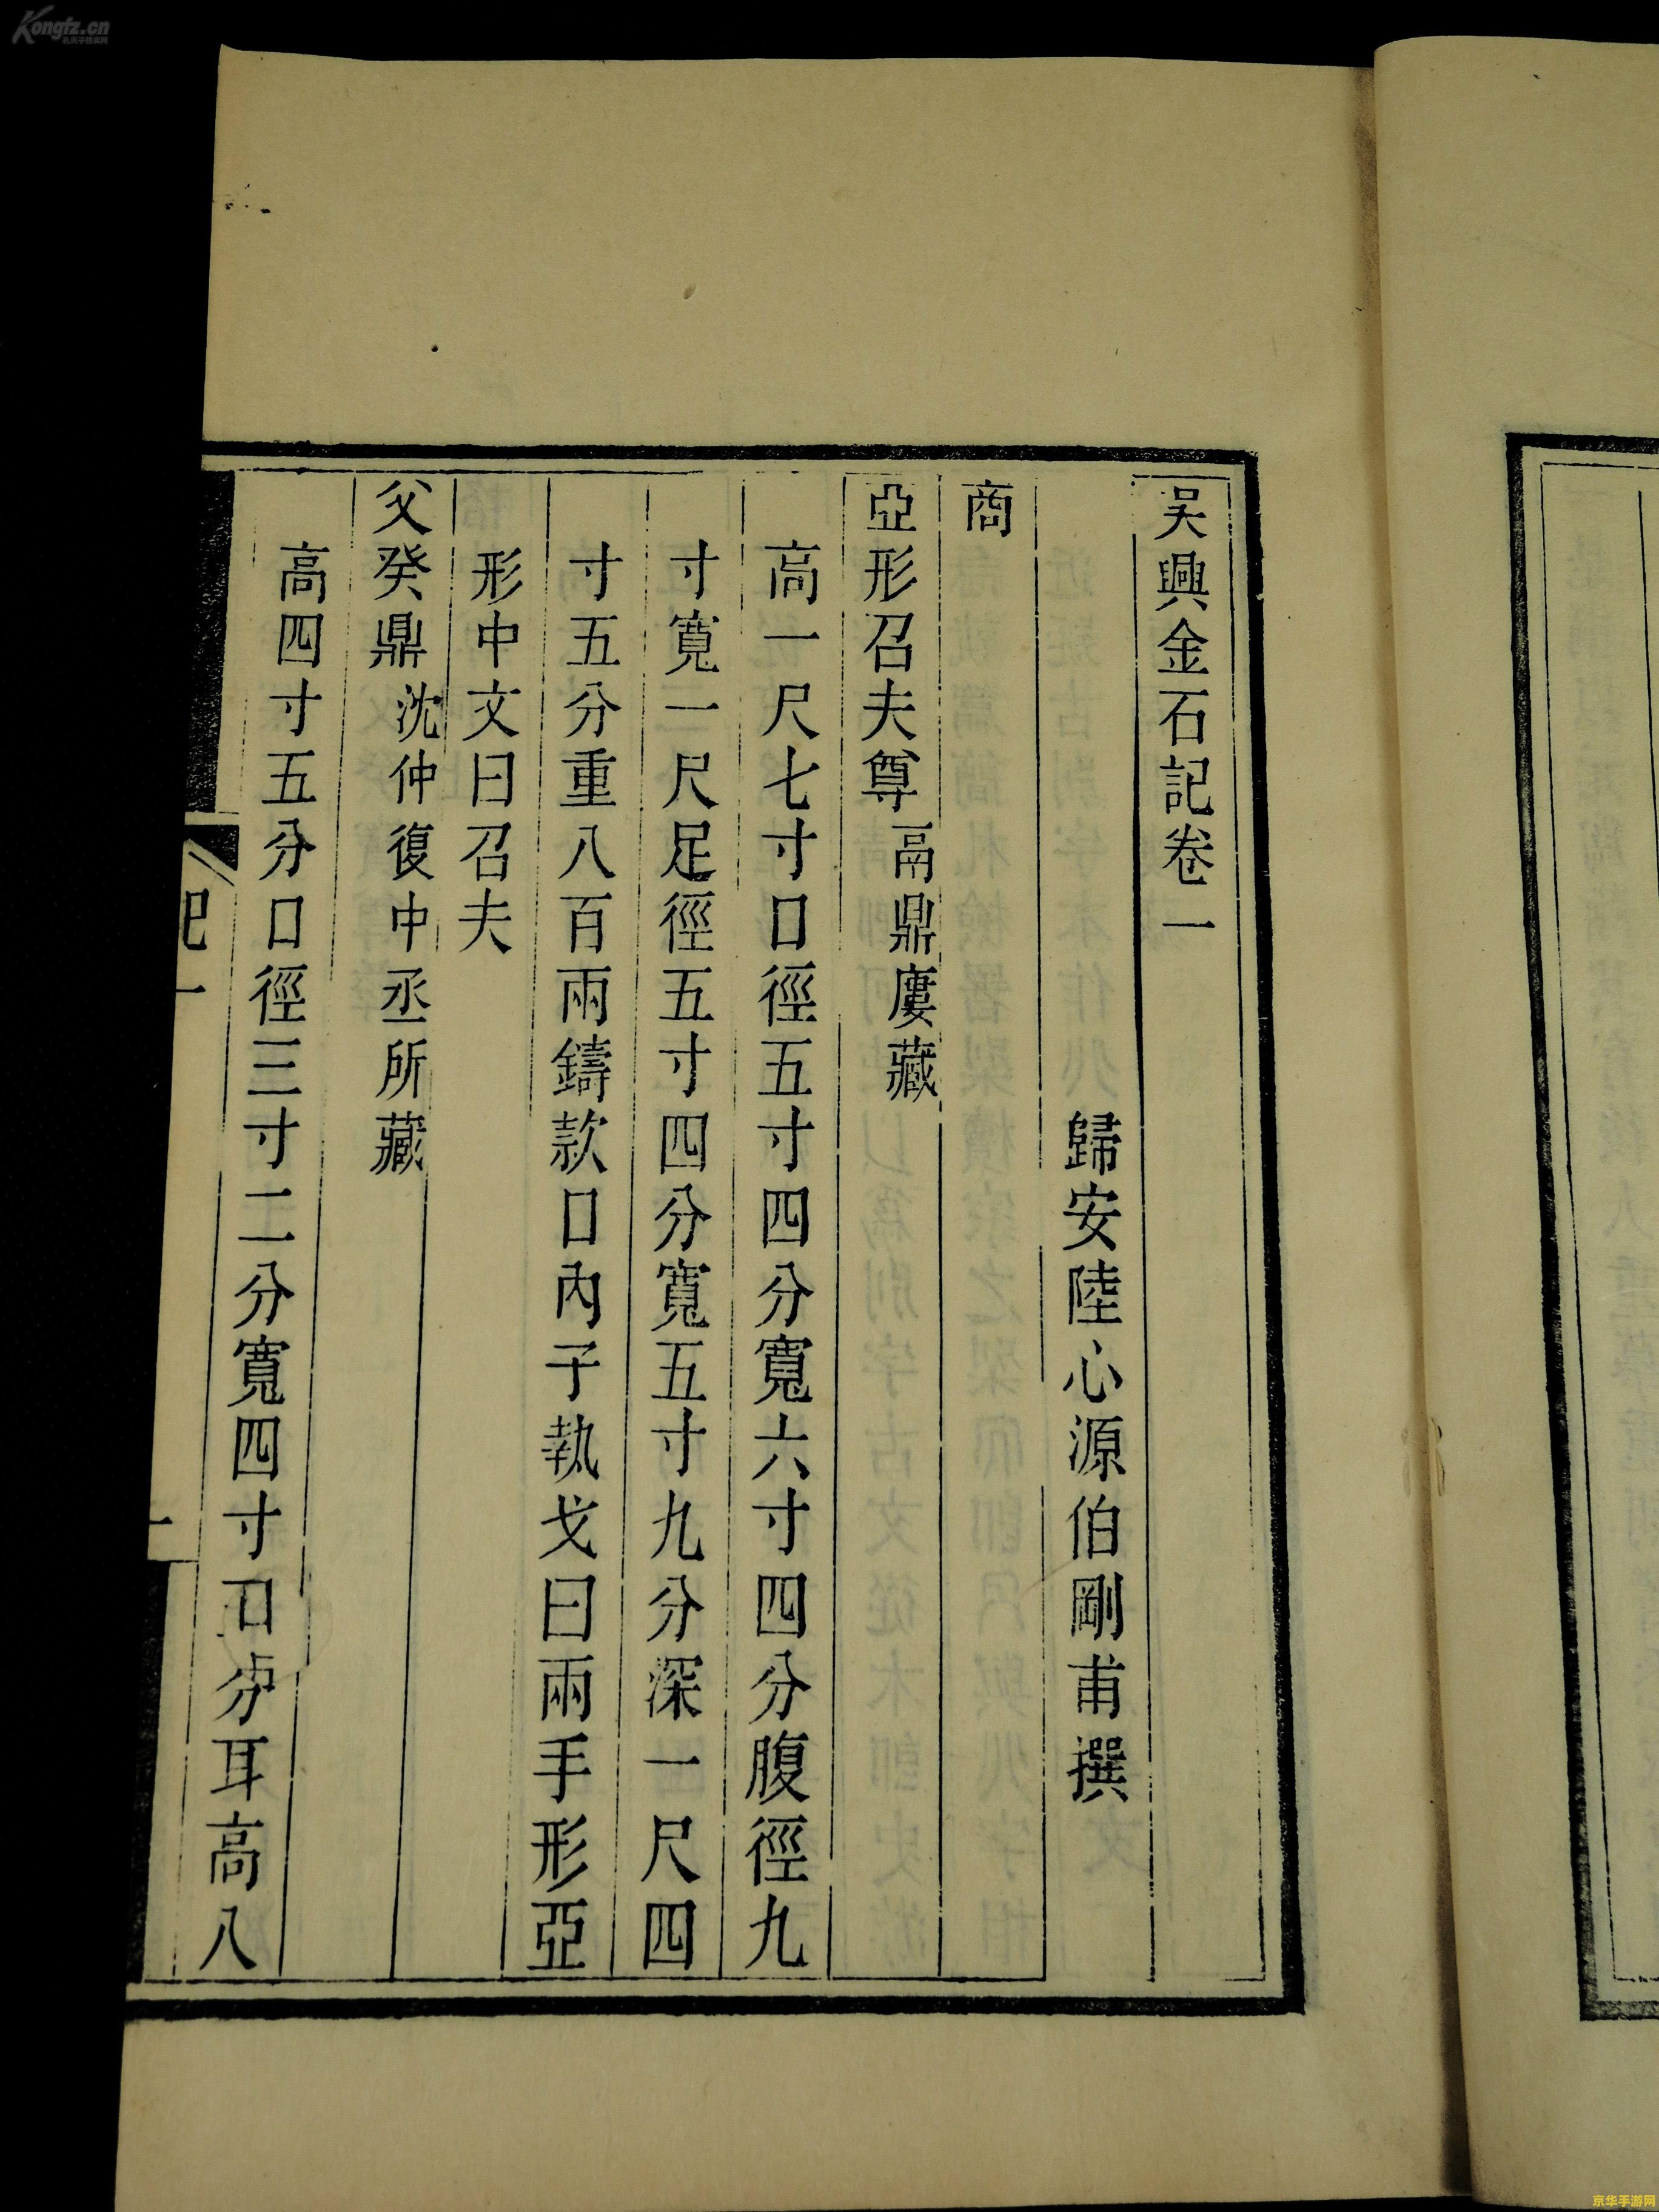 吳興金石記卷一
歸安陸心源伯剛甫撰
商
亞形召夫尊鬲鼎廔藏
高一尺七寸口徑五寸四分寬六寸四分腹徑九
寸寬一尺足徑五寸四分寬五寸九分深一尺四
寸五分重八百兩鑄款口內子執戈曰兩手形亞
形中文曰召夫
父癸鼎沈仲復中丞所藏
高四寸五分口徑三寸二分寬四寸口分耳高八
記一
一
Kongfz.cn
孔夫子旧书网
京华手游网